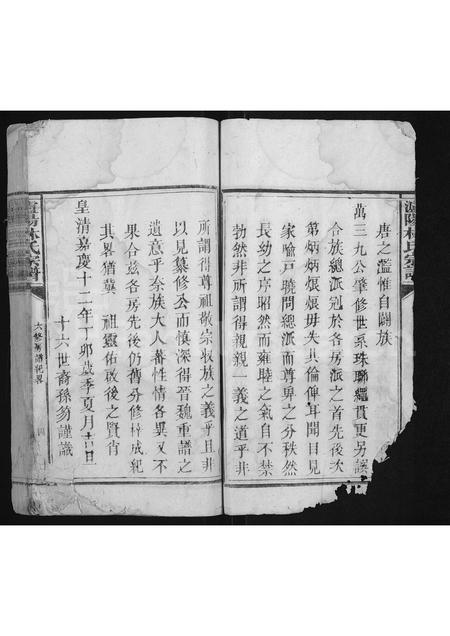 唐之濫惟自闢族
萬三九公肇修世系珠聯繩貫更另議
合族總派冠於各房派之首先後次
第炳炳烺烺毋失其倫俾耳聞目見
家喻戶曉問總派而尊卑之分秩然
長幼之序昭然而雍睦之氣自不禁
勃然非所謂得親親一義之道乎非
所謂得尊祖敬宗收族之義乎且非
以見纂修公而慎深得晉魏重譜之
遺意乎奈族大人蕃性情各異又不
果合茲各房先後仍舊分修梓成紀
其畧猶冀 祖靈佑啟後之賢肖
皇清嘉慶十二年丁卯歲季夏月吉旦
十六世裔孫
謹識
林氏宗譜
六修
譜紀畧
四
林氏宗譜